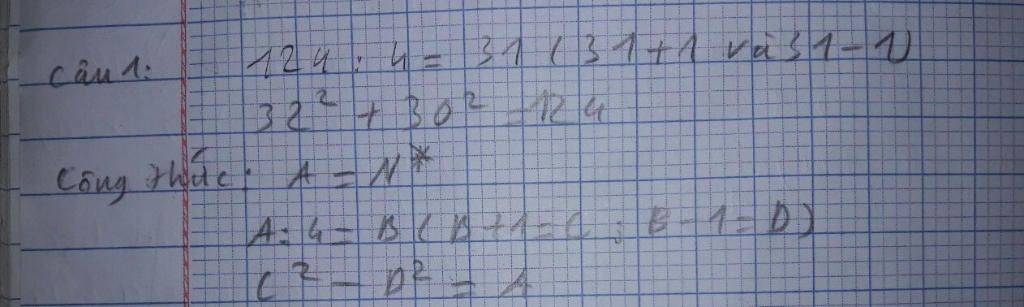 Câu 1: 124 : 4 = 31 ( 31+1 và 31-1)
32² + 30² = 124
Công thức: A = N*
A : 4 = B ( B+1 = C ; B-1 = D)
C² - D² = A